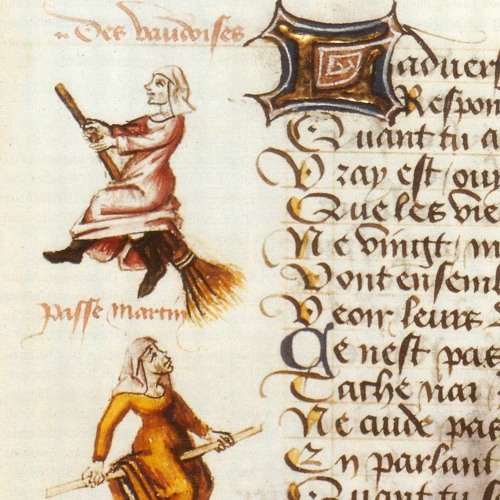 Des vaudoises
Ladvers
Respon
Quant tu a
Vray est ouy
Que les vie
Ne vingt
Vont ensem
passe martin
Veoir leurs
Ce nest pas
Tache
Ne cuide pas
En parlant
Quant tu s